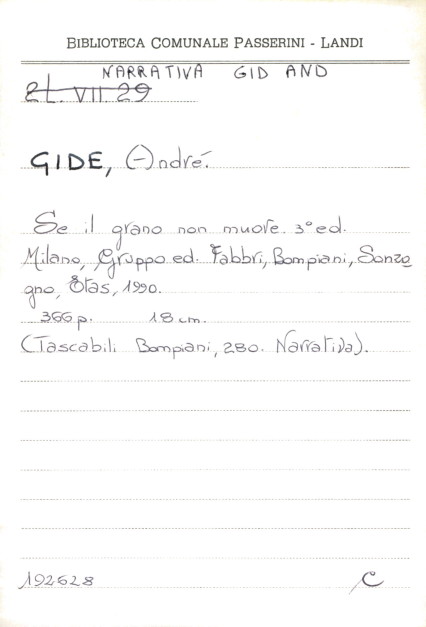 BIBLIOTECA COMUNALE PASSERINI - LANDI
NARRATIVA GID AND
2L. VII. 29
GIDE, André.
Se il grano non muore. 3° ed.
Milano, Gruppo ed. Fabbri, Bompiani, Sonzo
gno, Etas, 1990.
366 p. 18 cm.
(Tascabili Bompiani, 280. Narrativa).
192628 C